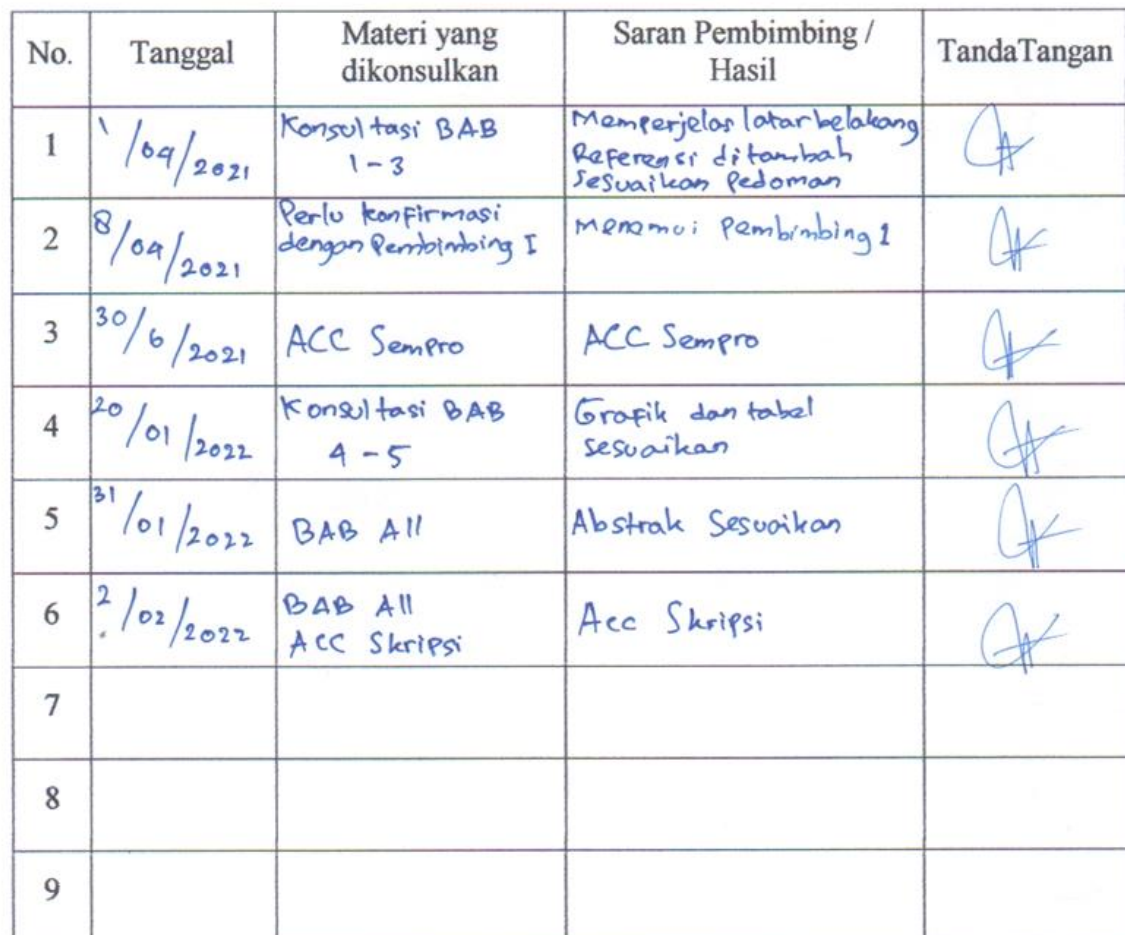 No. Tanggal Materi yang dikonsulkan Saran Pembimbing / Hasil TandaTangan
1 1/04/2021 Konsultasi BAB Memperjelas latar belakang
1 - 3 Referensi ditambah
Sesuaikan Pedoman
2 8/04/2021 Perlu konfirmasi Menemui Pembimbing 1
dengan Pembimbing I
3 30/6/2021 ACC Sempro ACC Sempro
4 20/01/2022 Konsultasi BAB Grafik dan tabel
4 - 5 sesuaikan
5 31/01/2022 BAB All Abstrak Sesuaikan
6 2/02/2022 BAB All Acc Skripsi
ACC Skripsi
7
8
9